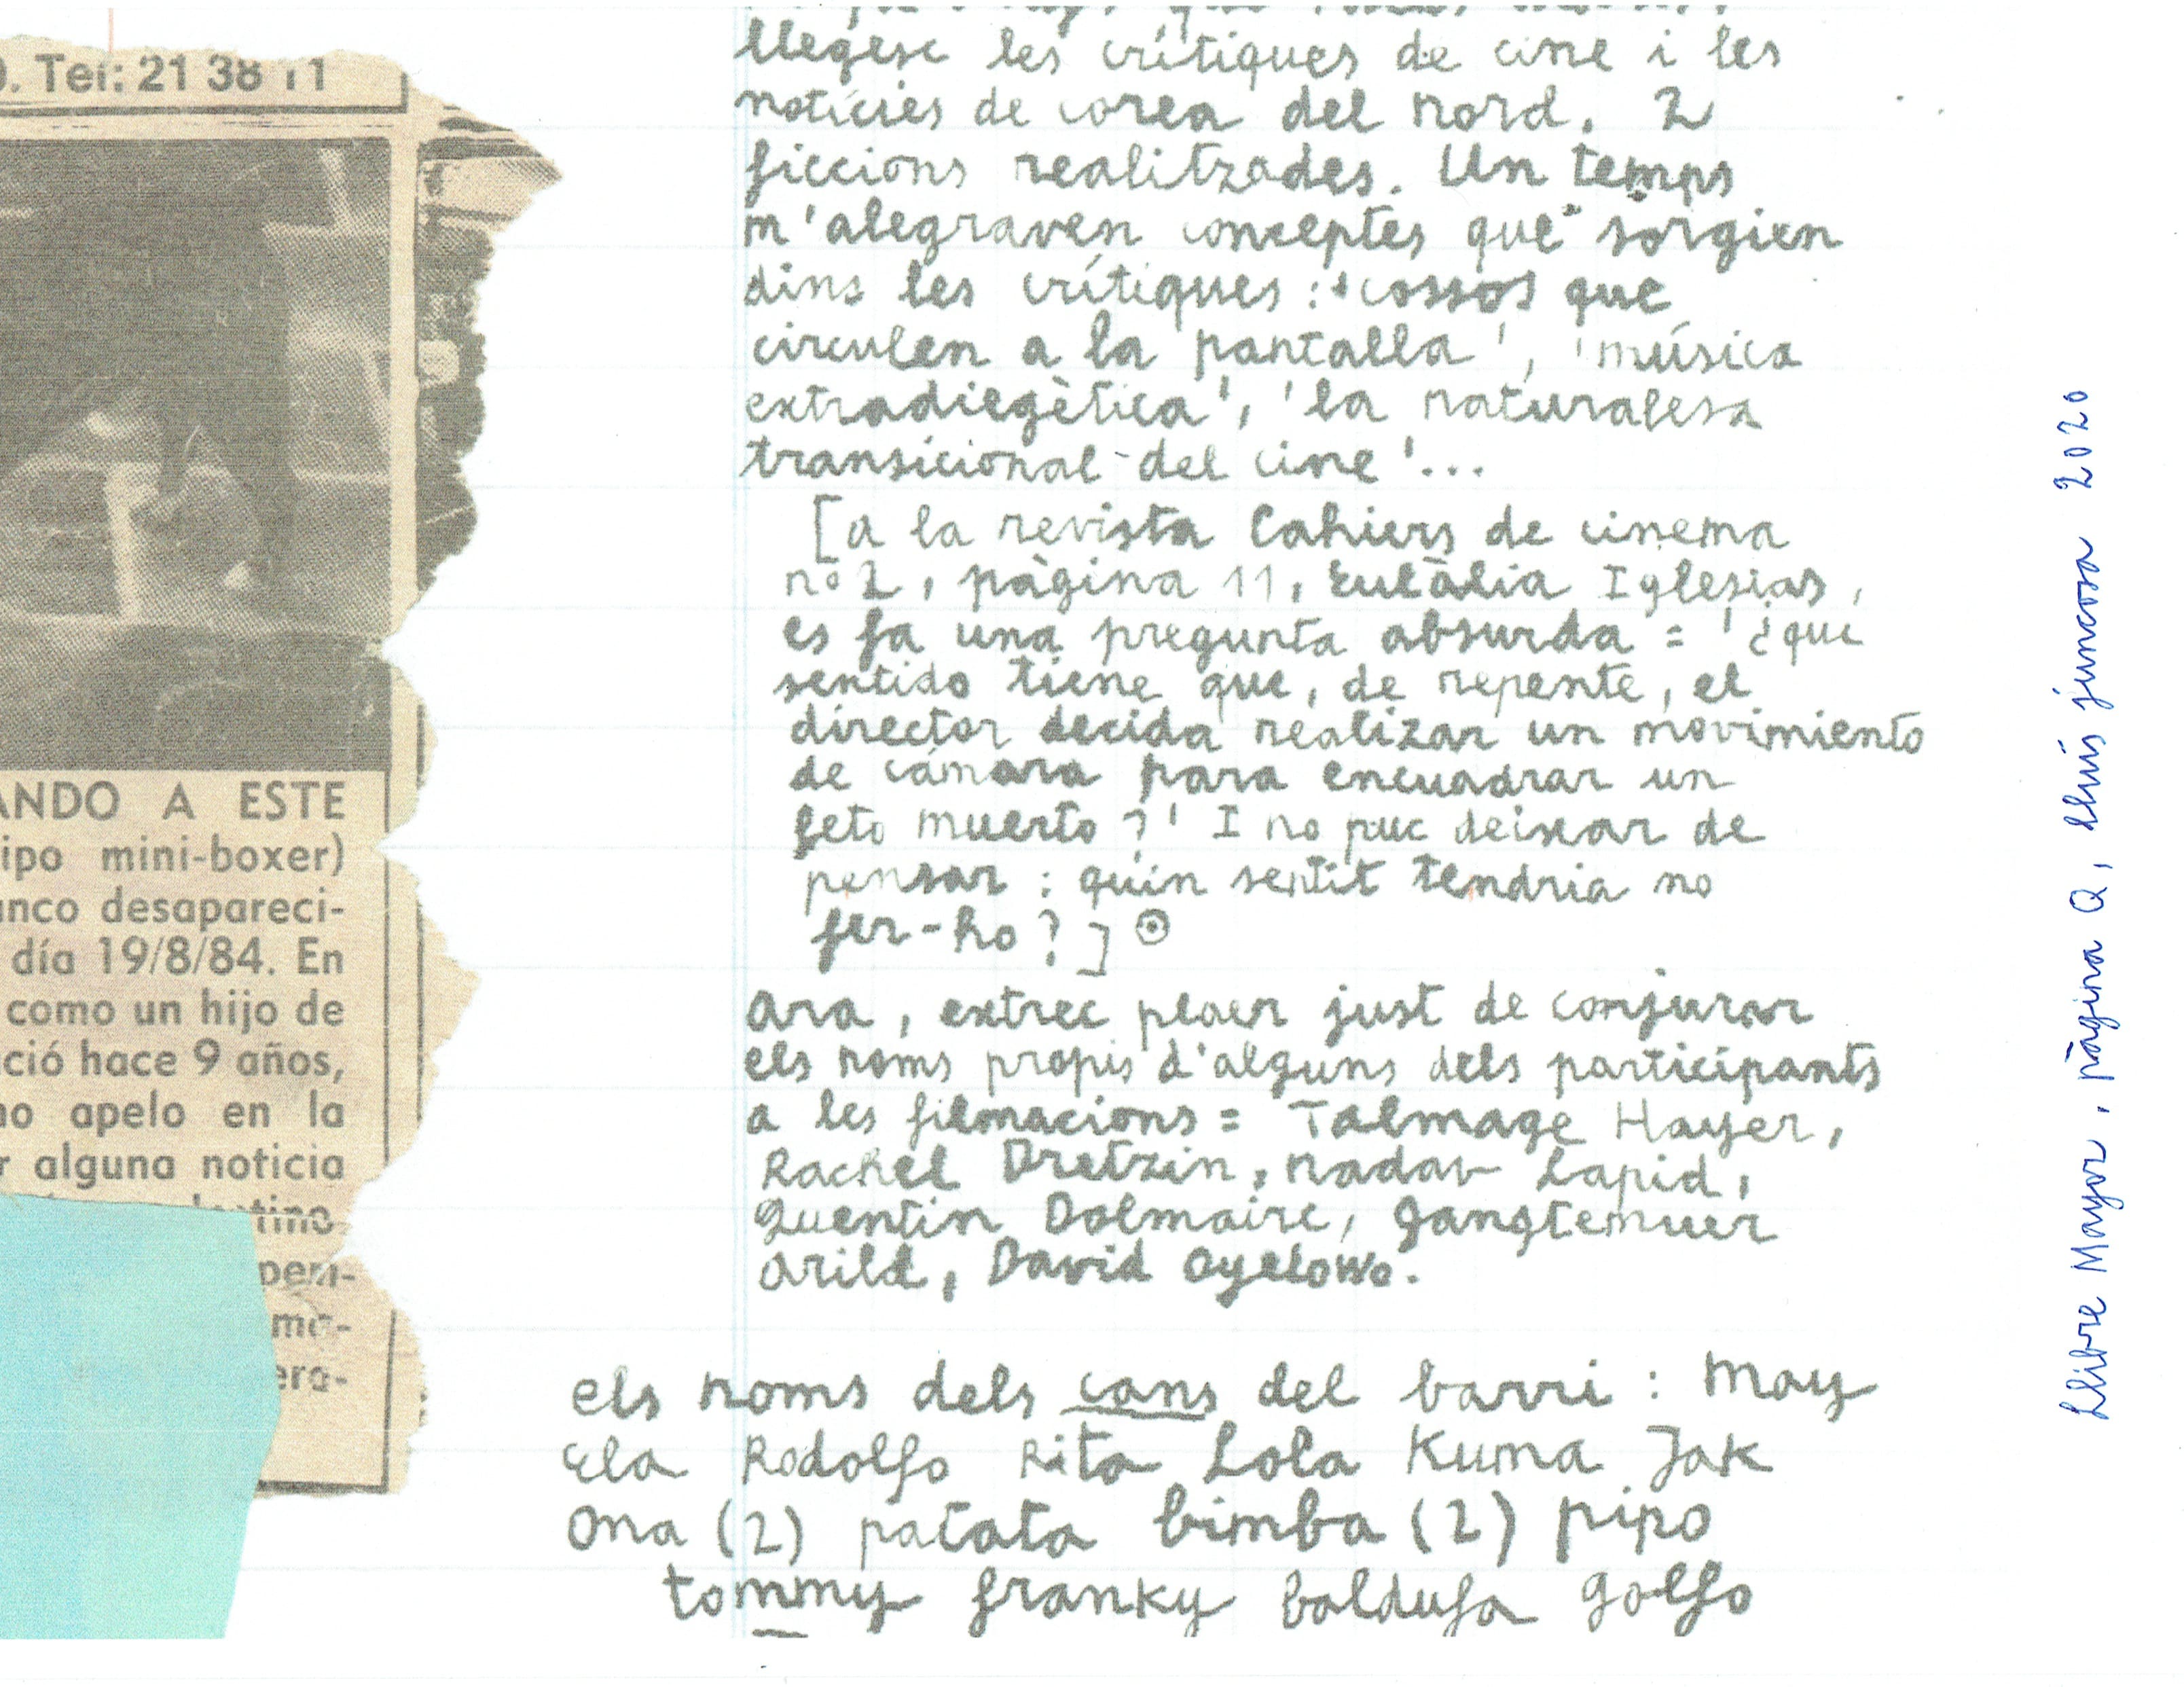 . Tel: 21 38 11
ANDO A ESTE
ipo mini-boxer)
anco desapareci-
día 19/8/84. En
como un hijo de
ció hace 9 años,
no apelo en la
r alguna noticia
tino
pem-
me-
era-
llegesc les crítiques de cine i les
notícies de corea del nord. 2
ficcions realitzades. Un temps
m'alegraven conceptes que sorgien
dins les crítiques: 'cossos que
circulen a la pantalla', 'música
extradiegètica', 'la naturalesa
transicional del cine'...
[a la revista Cahiers de cinema
nº 2, pàgina 11, Eulàlia Iglesias,
es fa una pregunta absurda = '¿que
sentido tiene que, de repente, el
director decida realizar un movimiento
de cámara para encuadrar un
feto muerto?' I no puc deixar de
pensar: quin sentit tendria no
fer-ho?]
Ara, extrec plaer just de conjurar
els noms propis d'alguns dels participants
a les filmacions = Talmage Hayer,
Rachel Dretzin, nadav Lapid,
Quentin Dolmaire, Jangtemuer
Arild, David Oyelowo.
els noms dels cans del barri: May
Ela Rodolfo Rita Lola Kuma Jak
Ona (2) patata bimba (2) pipo
tommy franky baldufa golfo
Llibre Mayor, pàgina Q, lluís juncosa 2020